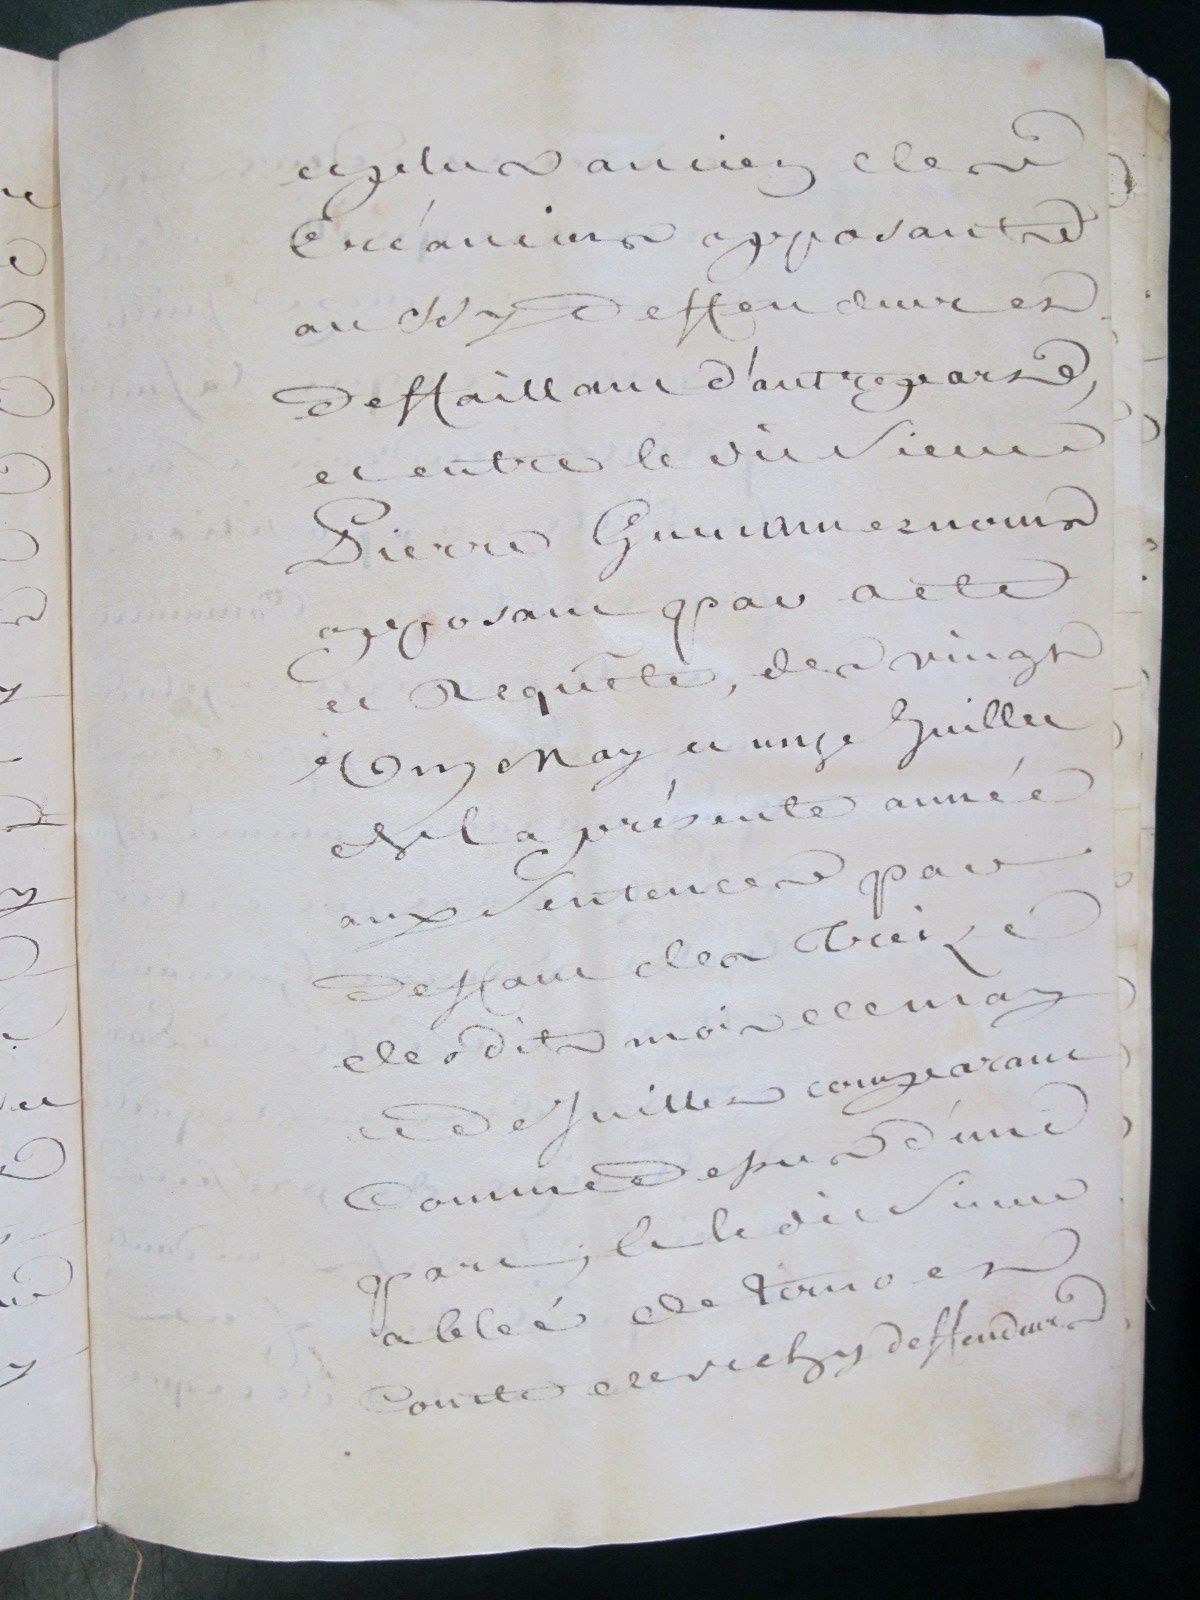 et plus ancien des
Créanciers opposants
aussy deffendeur et
deffaillant d'autre part,
et entre le dit Sieur
Pierre es noms
opposant par acte
et Requête, des vingt
May et unze Juillet
de la présente année
aux Sentences par
deffaut des treize
desdits mois de may
et de Juillet comparant
comme depuis d'une
part, et le dit Sieur
abbé de et
Comte de vichy deffendeurs